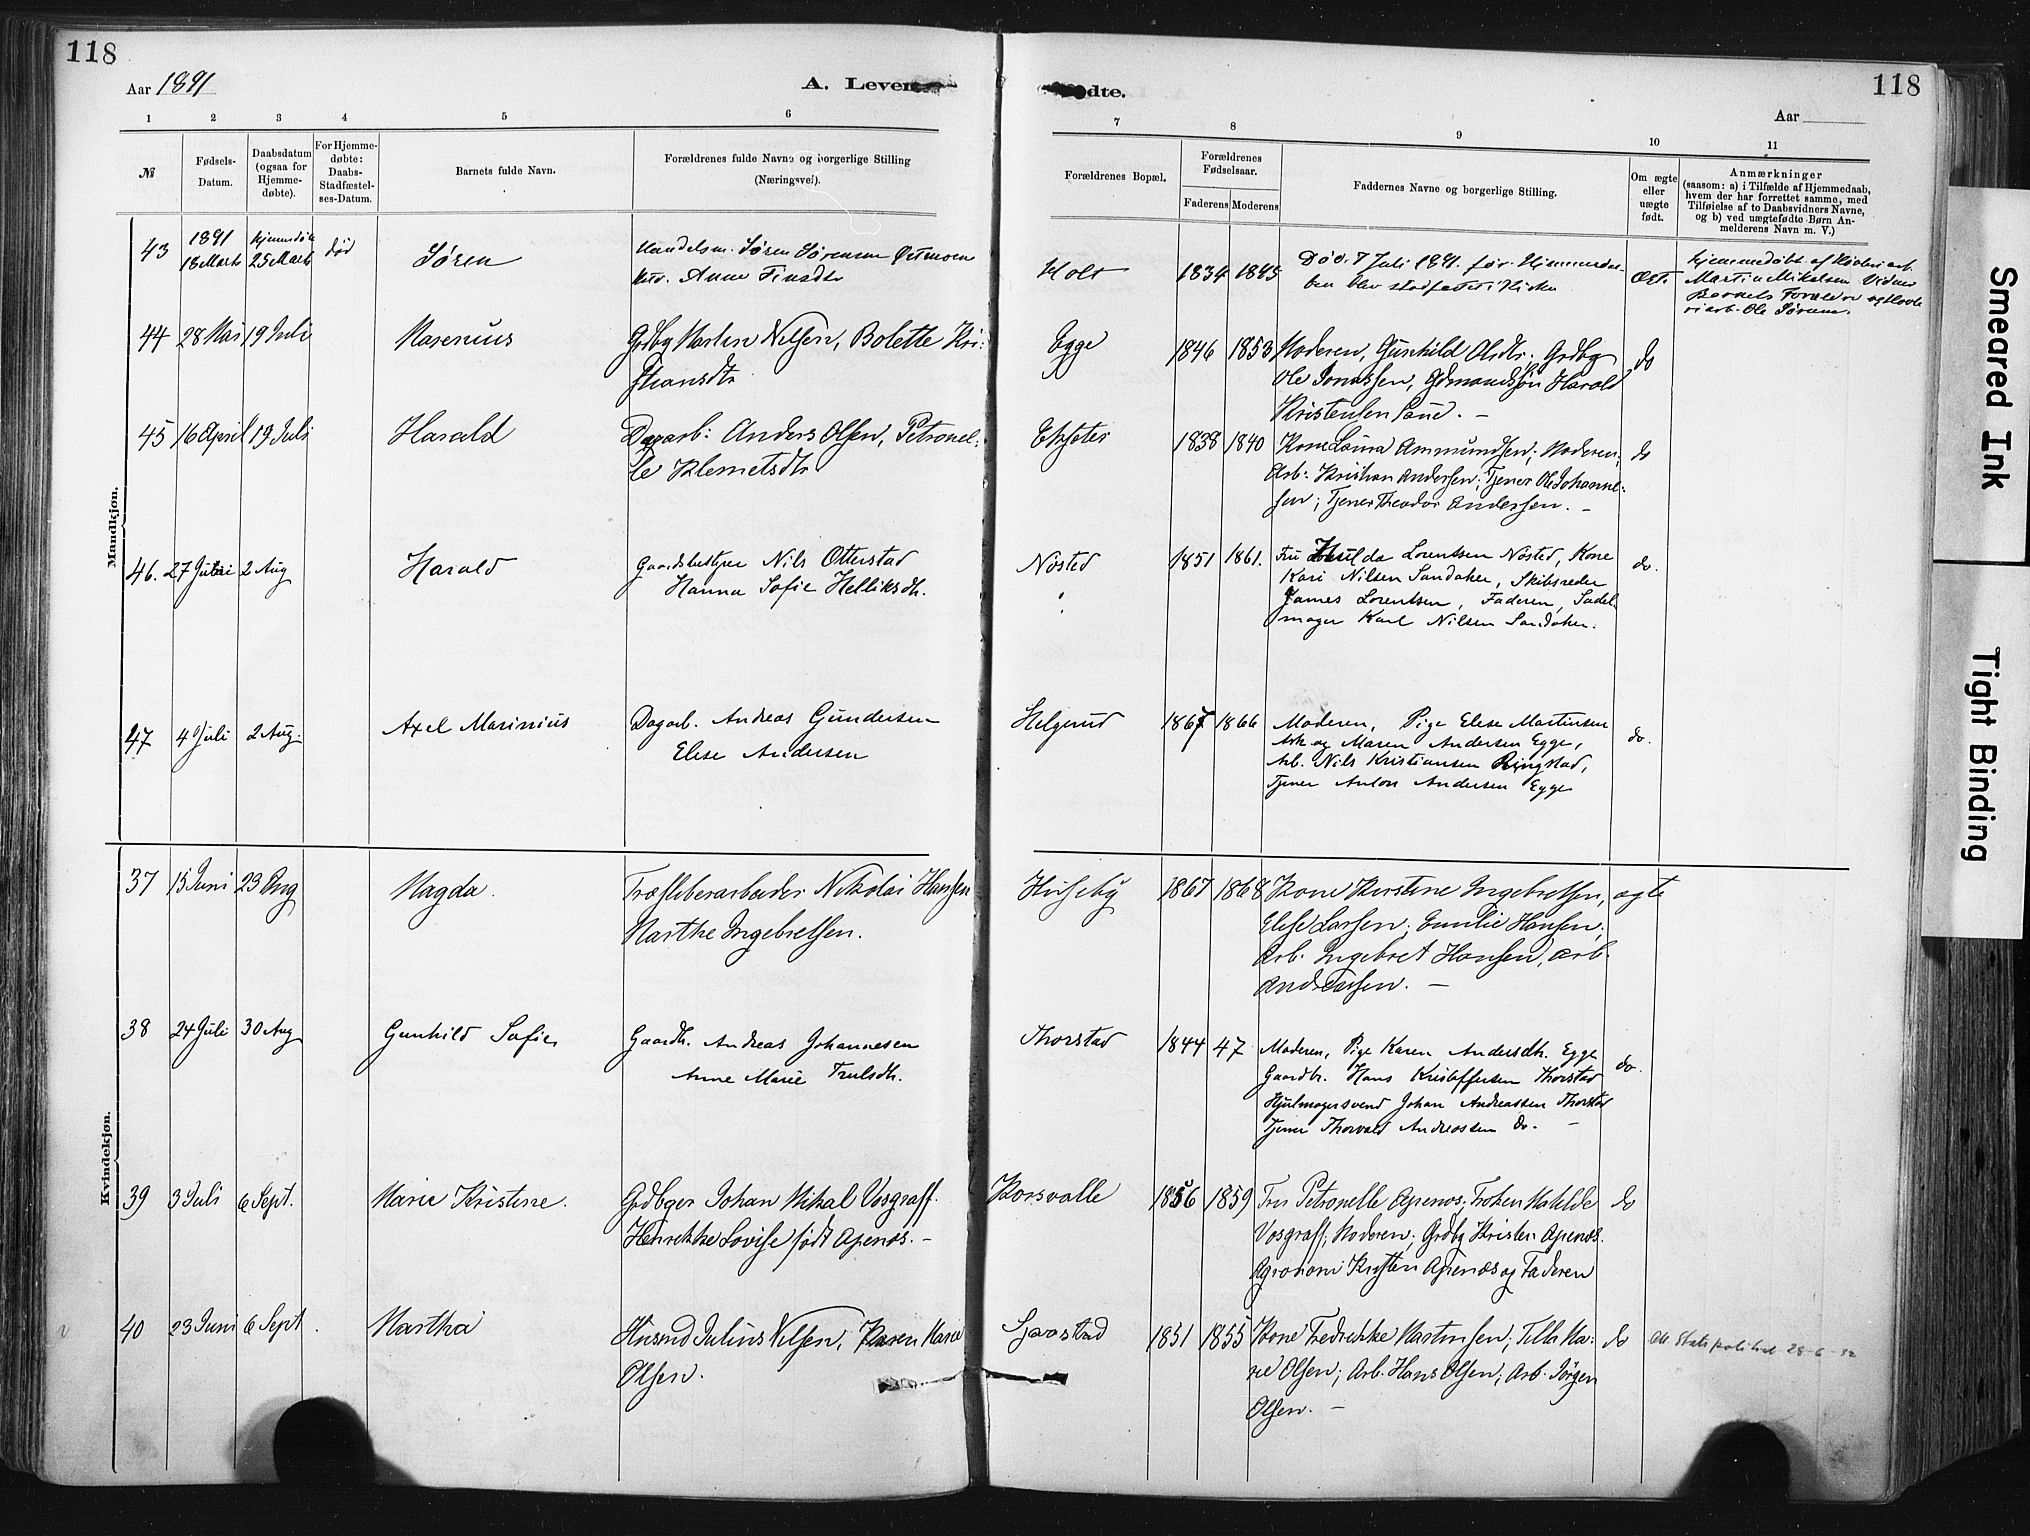 118
Aar 1891
A. Levende
fødte.
118
Aar
1 2 3 4 5 6 7 8 9 10 11
№
Fødsels-
Datum.
Daabsdatum
(ogsaa for
Hjemme-
døbte).
For Hjemme-
døbte:
Daabs-
Stadfæstel-
ses-Datum.
Barnets fulde Navn.
Forældrenes fulde Navne og borgerlige Stilling
(Næringsvei).
Forældrenes Bopæl.
Forældrenes
Fødselsaar.
Faderens Moderens
Faddernes Navne og borgerlige Stilling.
Om ægte
eller
uægte
født.
Anmærkninger
(saasom: a) i Tilfælde af Hjemmedaab,
hvem der har forrettet samme, med
Tilføielse af to Daabsvidners Navne,
og b) ved uægtefødte Børn An-
melderens Navn m. V.)
Mandkjøn.
43
1891
18 Marts
hjemmedøbt
25 Marts
død
Søren
Handelsm. Søren Sørensen
Anne Finsdtr
Holt
1834 1845
Død 7 Juli 1891 før Hjemmedaa-
ben blev stadfæstet i Kirken
Ægte
hjemmedøbt af
Martin Mikelsen Vidner
Barnets Forældre og
Ole
44 28 Mai 19 Juli
Marenius
Grdbg Martin Nilsen, Bolette Kri-
stiansdtr
Egge
1846 1853
Moderen, Gunhild Olsdtr. Grdbg
Ole Jonassen, Gdmandssøn Harald
Kristensen
do
45 16 April 19 Juli
Harald
Dagarb: Anders Olsen, Petronel-
le Klemetsdtr
1838 1840
Kone Laura Ammundsen; Moderen;
Arb: Kristian Andersen; Tjener Ole Johanne-
sen; Tjener Theodor Andersen. –
do
46. 27 Juni 2 Aug
Harald
Gaardsbestyrer Nils Otterstad
Hanna Sofie Helliksdtr.
Nøsted
1851 1861.
Fru Hulda Lorentsen Nøsted, Kone
Kari Nilsen Sandaker, Skibsreder
James Lorentsen, Faderen, Sadel-
mager Karl Nilsen Sandaker.
do.
47 4 Juli 2 Aug.
Axel Marinius
Dagarb. Andreas Gundersen
Elise Andersen
Helgerud
1867 1866
Moderen, Pige Elise Martinsen
Arb og Maren Andersen Egge,
Arb. Nils Kristiansen Ringstad,
Tjener Anton Andersen Egge
do.
Kvindekjøn.
37 15 Juni 23 Aug
Magda.
Træsliberarbeider Nikolai Hansen
Marthe Ingebretsen.
Huseby
1867 1868
Kone Kirstine Ingebretsen,
Elise Larsen; Emilie Hansen;
Arb. Ingebret Hansen, Arb.
And. Larsen. –
ægte
38 24 Juli 30 Aug
Gunhild Sofie
Gaardb. Andreas Johannesen
Anne Marie Trulsdtr.
Thorstad
1844 47
Moderen, Pige Karen Andersdtr. Egge
Gaardbr. Hans Kristoffersen Thorstad
Hjulmagersvend Johan Andreassen Thorstad
Tjener Thorvald Andreassen do. –
do.
39 3 Juli 6 Sept.
Marie Kristine.
Grdbger Johan Mikal Vosgraff.
Henrikke Lovise født Apenæs. –
Korsvolle
1856 1859
Fru Petronelle Apenæs; Frøken Matilde
Vosgraff; Moderen; Grdbg Kristen Apenæs.
Agronom Kristen Apenæs og Faderen
do
40 23 Juni 6 Sept.
Martha
Husmd Julius Nilsen, Karen Marie
Olsen.
Sjaastad
1851 1855
Kone Fredrikke Martinsen; Tilla Ma-
rie Olsen; Arb. Hans Olsen; Arb. Jørgen
Olsen. –
do
Att Statspolitiet 28-6-
Smeared Ink
Tight Binding